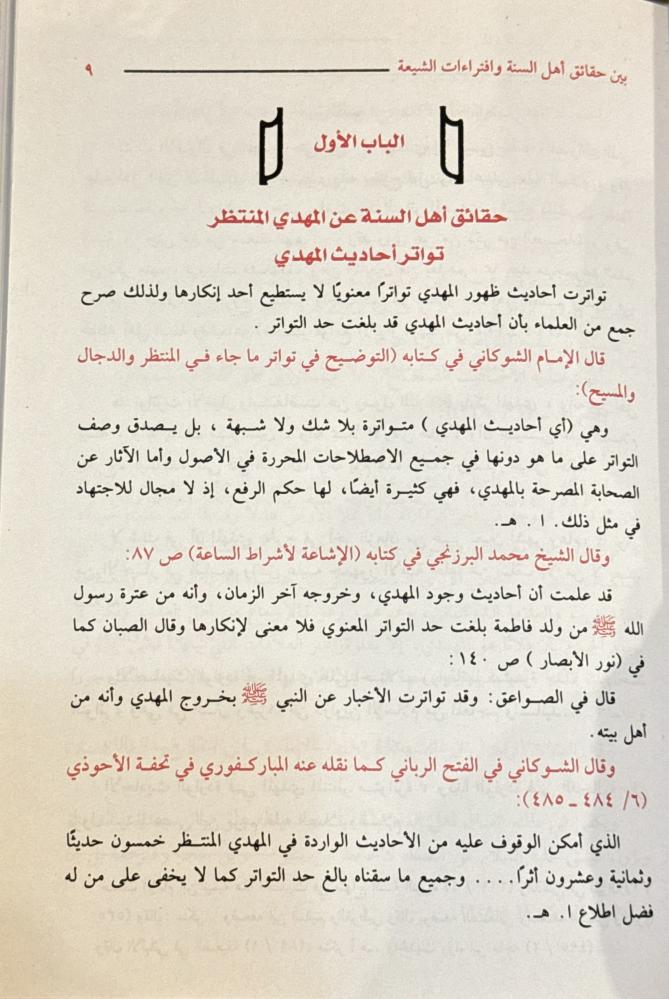 بين حقائق أهل السنة وافتراءات الشيعة ٩
الباب الأول
حقائق أهل السنة عن المهدي المنتظر
تواتر أحاديث المهدي
تواترت أحاديث ظهور المهدي تواترًا معنويًا لا يستطيع أحد إنكارها ولذلك صرح
جمع من العلماء بأن أحاديث المهدي قد بلغت حد التواتر .
قال الإمام الشوكاني في كتابه (التوضيح في تواتر ما جاء في المنتظر والدجال
والمسيح):
وهي (أي أحاديث المهدي ) متواترة بلا شك ولا شبهة ، بل يصدق وصف
التواتر على ما هو دونها في جميع الاصطلاحات المحررة في الأصول وأما الآثار عن
الصحابة المصرحة بالمهدي، فهي كثيرة أيضًا، لها حكم الرفع، إذ لا مجال للاجتهاد
في مثل ذلك. ا . هـ.
وقال الشيخ محمد البرزنجي في كتابه (الإشاعة لأشراط الساعة) ص ٨٧:
قد علمت أن أحاديث وجود المهدي، وخروجه آخر الزمان، وأنه من عترة رسول
الله ﷺ من ولد فاطمة بلغت حد التواتر المعنوي فلا معنى لإنكارها وقال الصبان كما
في (نور الأبصار ) ص ١٤٠:
قال في الصواعق: وقد تواترت الأخبار عن النبي ﷺ بخروج المهدي وأنه من
أهل بيته.
وقال الشوكاني في الفتح الرباني كما نقله عنه المباركفوري في تحفة الأحوذي
(٦/ ٤٨٤ ـ ٤٨٥):
الذي أمكن الوقوف عليه من الأحاديث الواردة في المهدي المنتظر خمسون حديثًا
وثمانية وعشرون أثرًا. . . . وجميع ما سقناه بالغ حد التواتر كما لا يخفى على من له
فضل اطلاع ا. هـ.